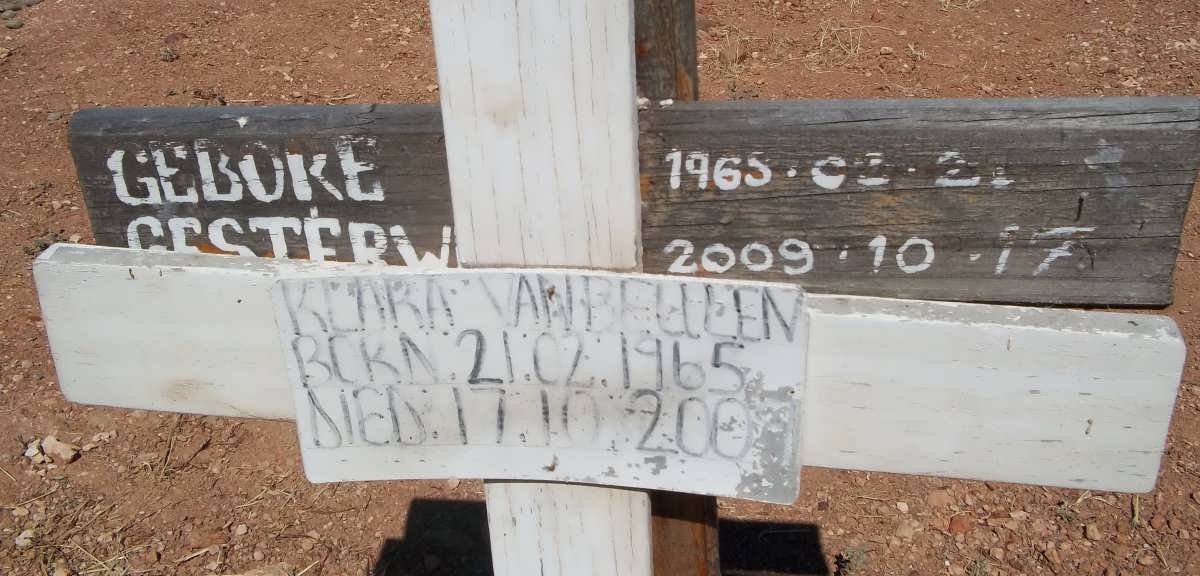 GEBORE 1965.02.21
GESTERW 2009.10.17
KLARA VAN BEULEN
BORN 21.02.1965
DIED 17.10.200